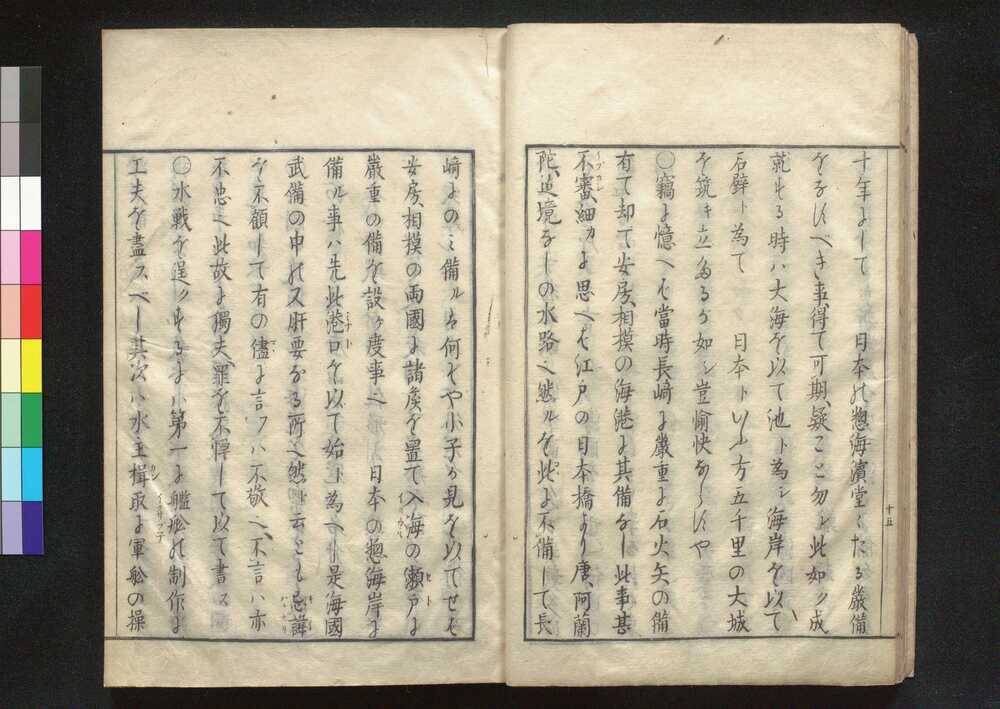 十年にして　日本の惣海濱堂々たる嚴備
をなすべき事、得て可期、疑こと勿レ此如ク成
就する時ハ大海を以て池ト為シ海岸を以て
石壁ト為て　日本トいふ方五千里の大城
を筑キ立たるが如シ豈愉快ならずや
○竊に憶へば當時長崎に嚴重に石火矢の備
有て却て安房、相模の海港に其備なし此事甚
不審、細カに思へば江戸の日本橋より唐、阿蘭
陀迄境なしの水路也然ルを此に不備して長
崎にのミ備ルは何ぞや小子が見を以てせば
安房、相模の兩國に諸矦を置て入海の瀬戸に
嚴重の備を設ヶ度事也　日本の惣海岸に
備ル事ハ先此港口を以て始ト為べし是海國
武備の中の又肝要なる所也然ト云とも忌諱
を不顧して有の儘に言フハ不敬也、不言ハ亦
不忠也此故に獨夫罪を不憚して以て書ス
○水戦を逞クするにハ第一に艦舩の制作に
工夫を盡スべし其次ハ水主楫取に軍舩の操
十五